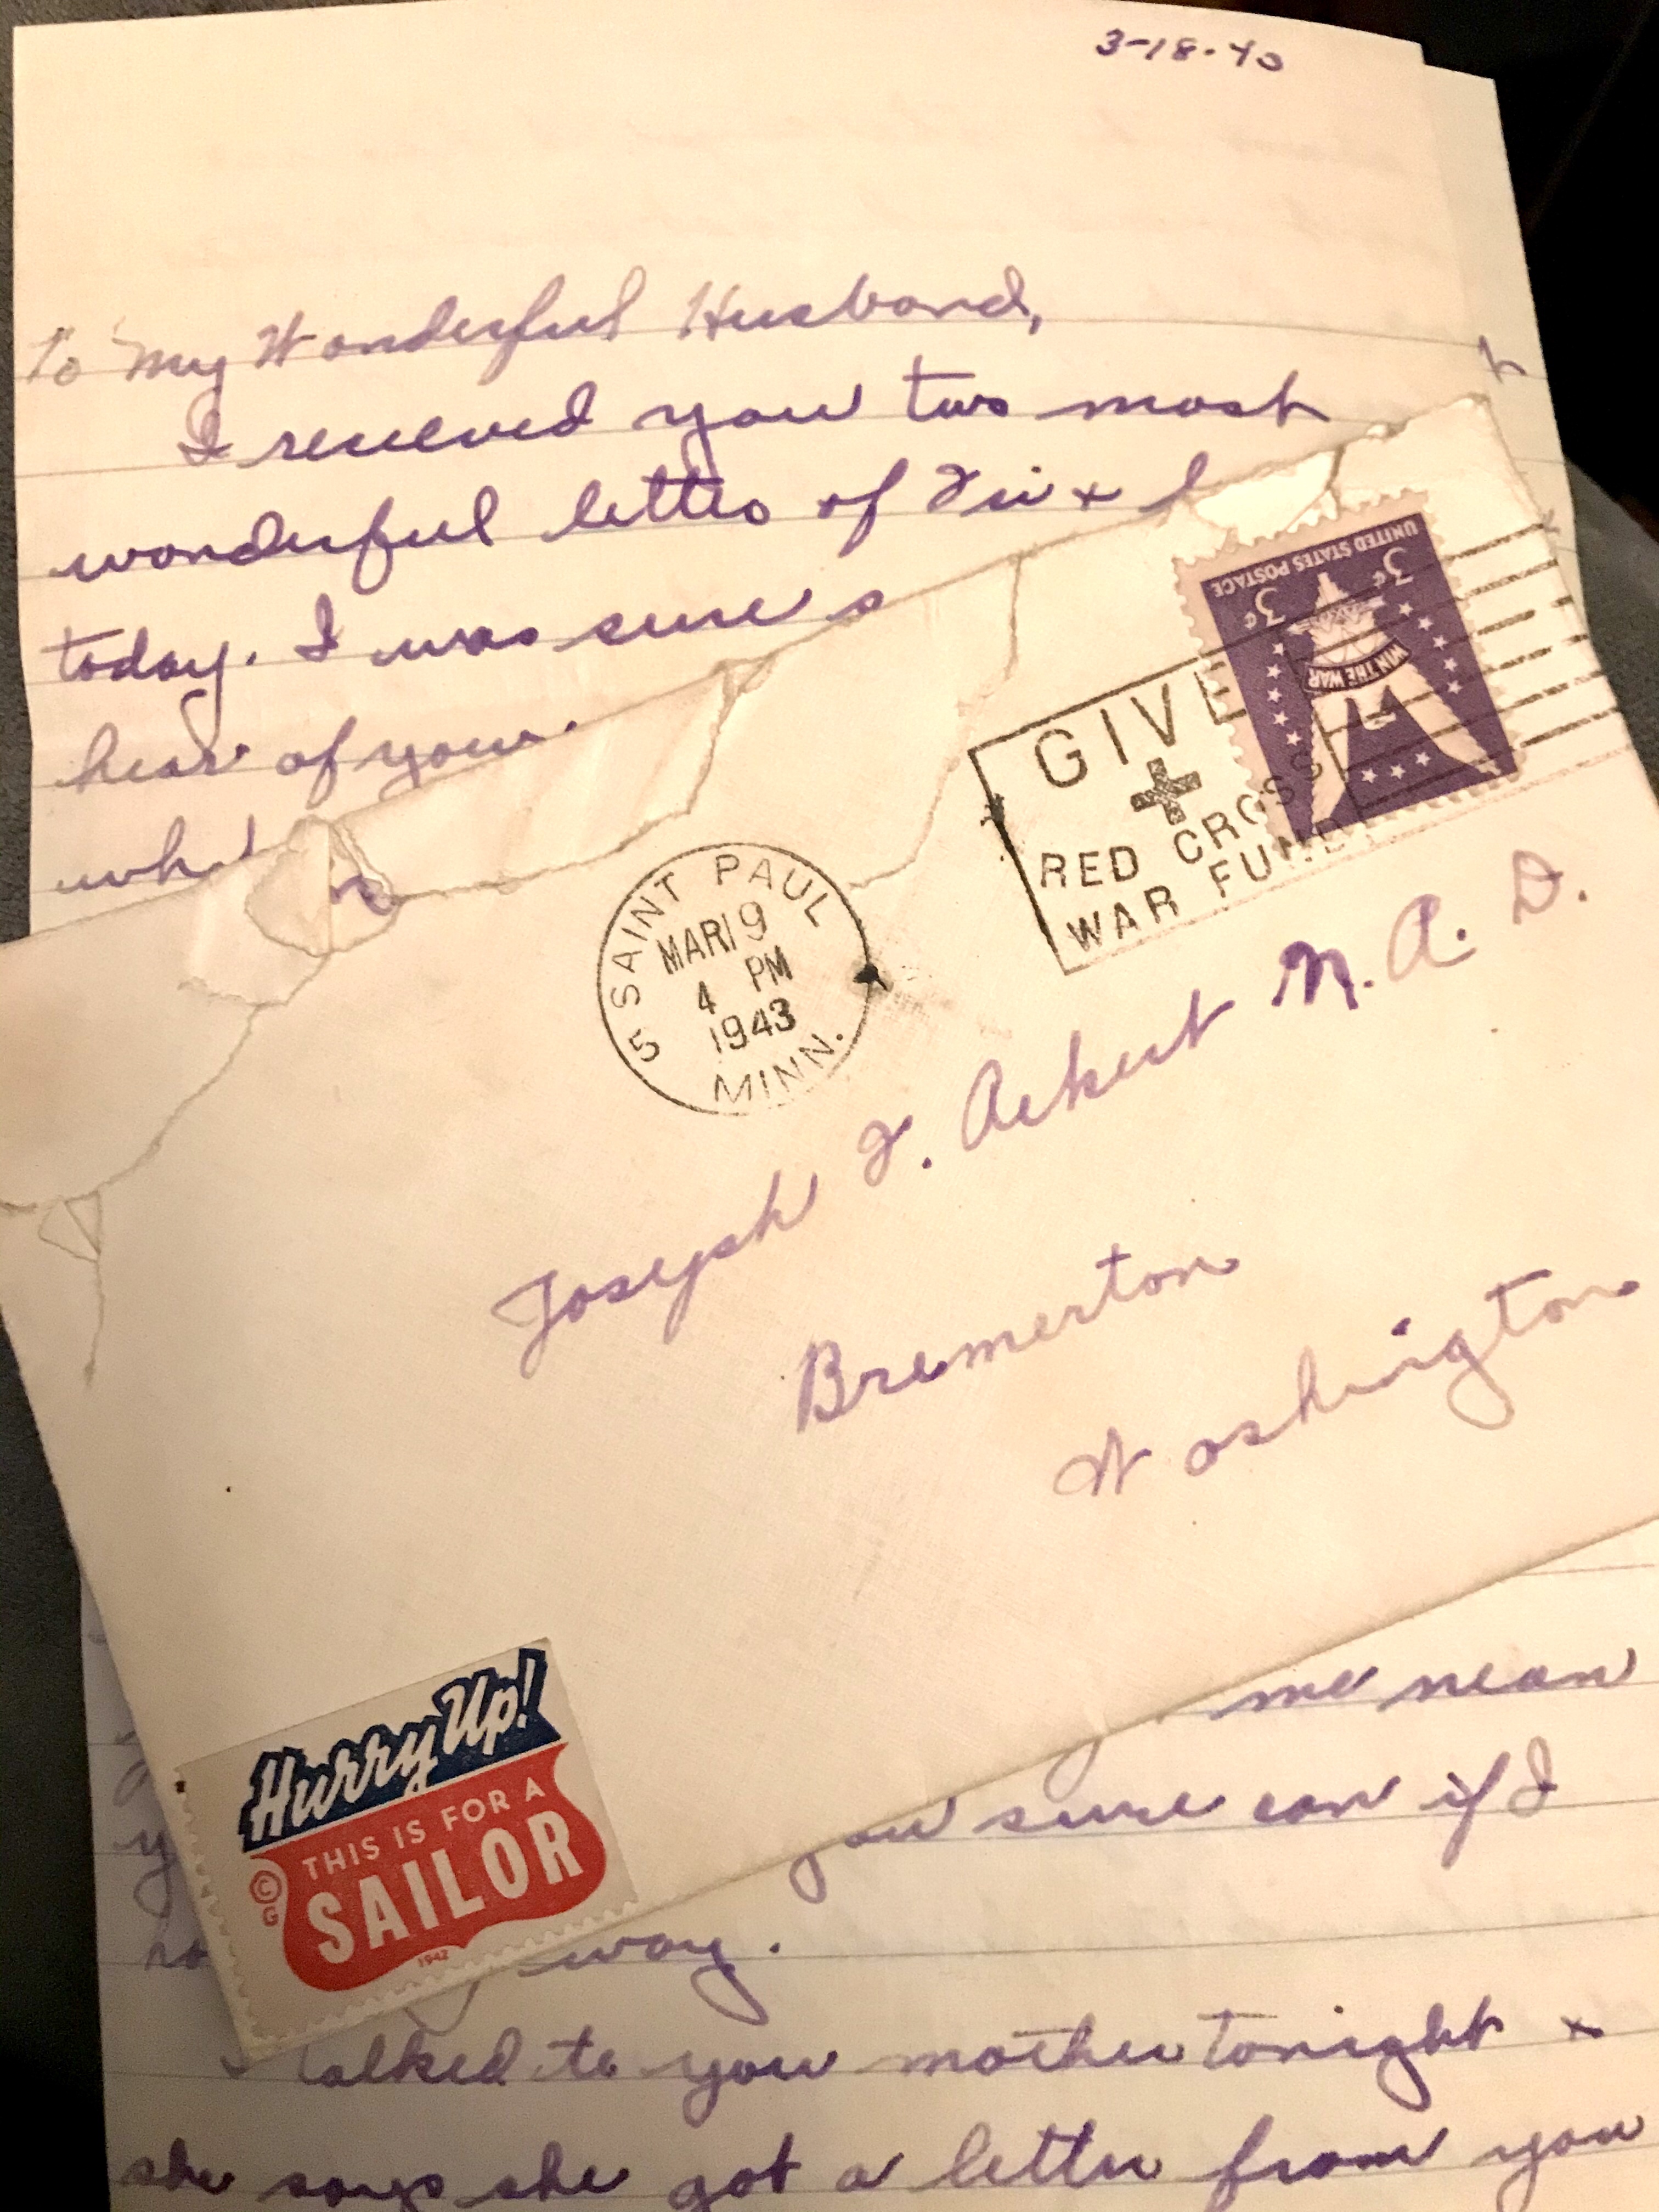 3-18-40
To My Wonderful Husband,
I received your two most
wonderful letters of Fri + 
today. I was sure
hear of your
UNITED STATES POSTAGE
3¢ 3¢
WIN THE WAR
GIVE
RED CROSS
WAR FUND
SAINT PAUL
MAR 19
4 PM
1943
5 MINN.
Joseph F. Ackert N.A.D.
Bremerton
Washington
Hurry Up!
THIS IS FOR A
SAILOR
© G
1942
me mean
you sure can if I
way.
I talked to your mother tonight +
she says she got a letter from you